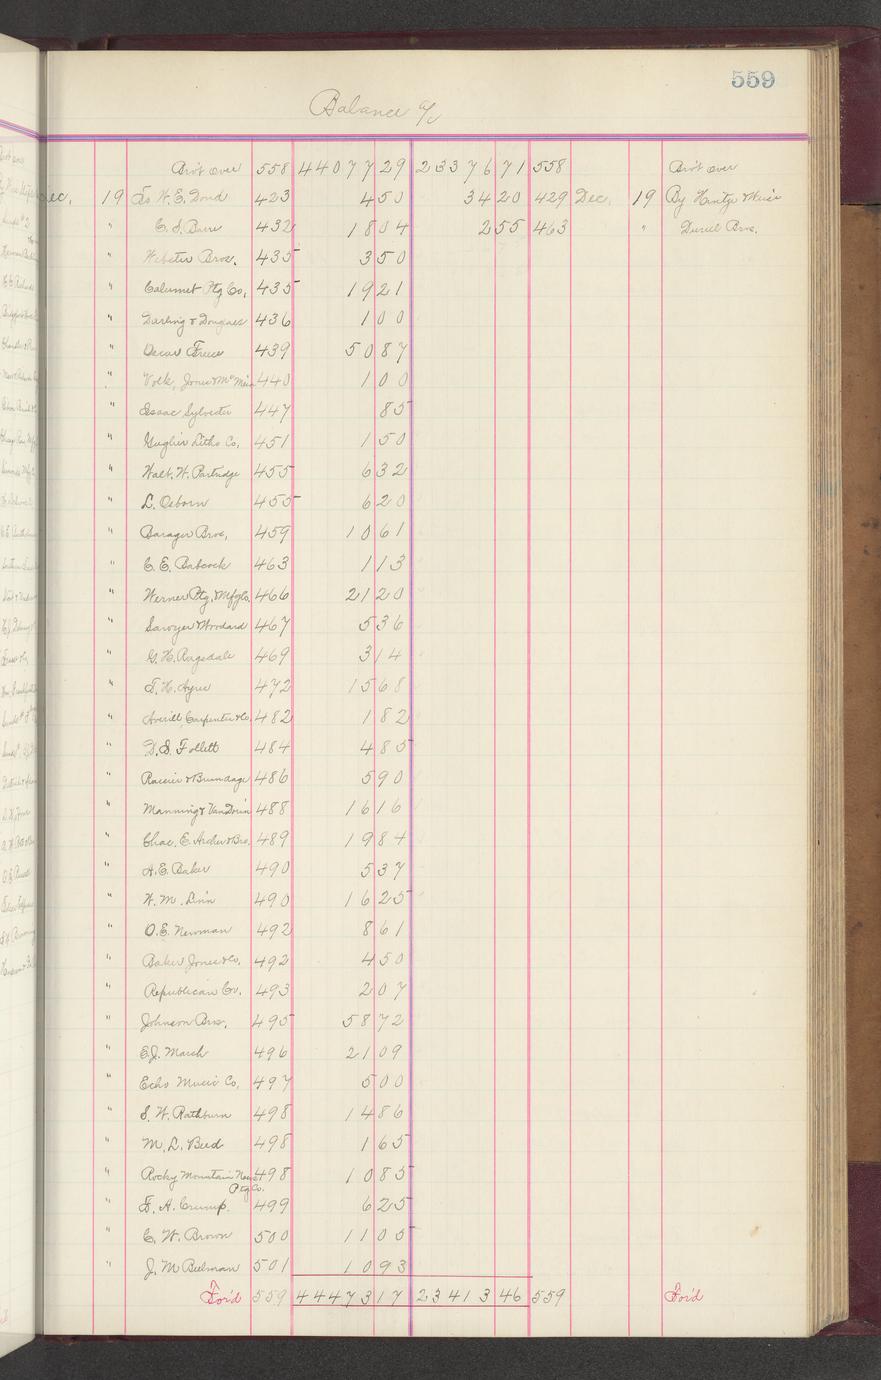 559
Balance a/c
Bro't over 558 44077 29 23376 71 558 Bro't over
Dec. 19 To W. E. Dond 423 4 50 34 20 429 Dec. 19 By Hintze &
" C. S. Burr 432 18 04 2 55 463 " Durrel Bros.
" Webster Bros. 435 3 50
" Calumet Ptg Co, 435 19 21
" Darling & Douglass 436 1 00
" Oscar Freese 439 50 87
" Volk, Jones & 440 1 00
" Isaac Sylvester 447 85
" Gugler Litho Co, 451 1 50
" Walt. W. Partridge 455 6 32
" L. Osborn 455 6 20
" Barager Bros, 459 10 61
" C. E. Babcock 463 1 13
" Werner Ptg. & Mfg Co. 466 21 20
" Sawyer & Woodard 467 5 36
" G. H. Ragsdale 469 3 14
" T. H. Ayres 472 15 68
" Averill Carpenter & Co. 482 1 82
" D. S. Follett 484 4 85
" & Brundage 486 5 90
" Manning & Van Doren 488 16 16
" Chas. E. Archer & Bro. 489 19 84
" A. E. Baker 490 5 37
" W. M. Linn 490 16 25
" O. E. Newman 492 8 61
" Baker Jones & Co. 492 4 50
" Republican Co. 493 2 07
" Johnson Bros. 495 58 72
" E. J. March 496 21 09
" Echo Music Co, 497 5 00
" S. W. Rathburn 498 14 86
" M. L. 498 1 65
" Rocky Mountain News 498 10 85
Ptg Co.
" F. A. Crump. 499 6 25
" C. W. Brown 500 11 05
" J. M. Bulman 501 10 93
For'd 559 44473 17 23413 46 559 For'd